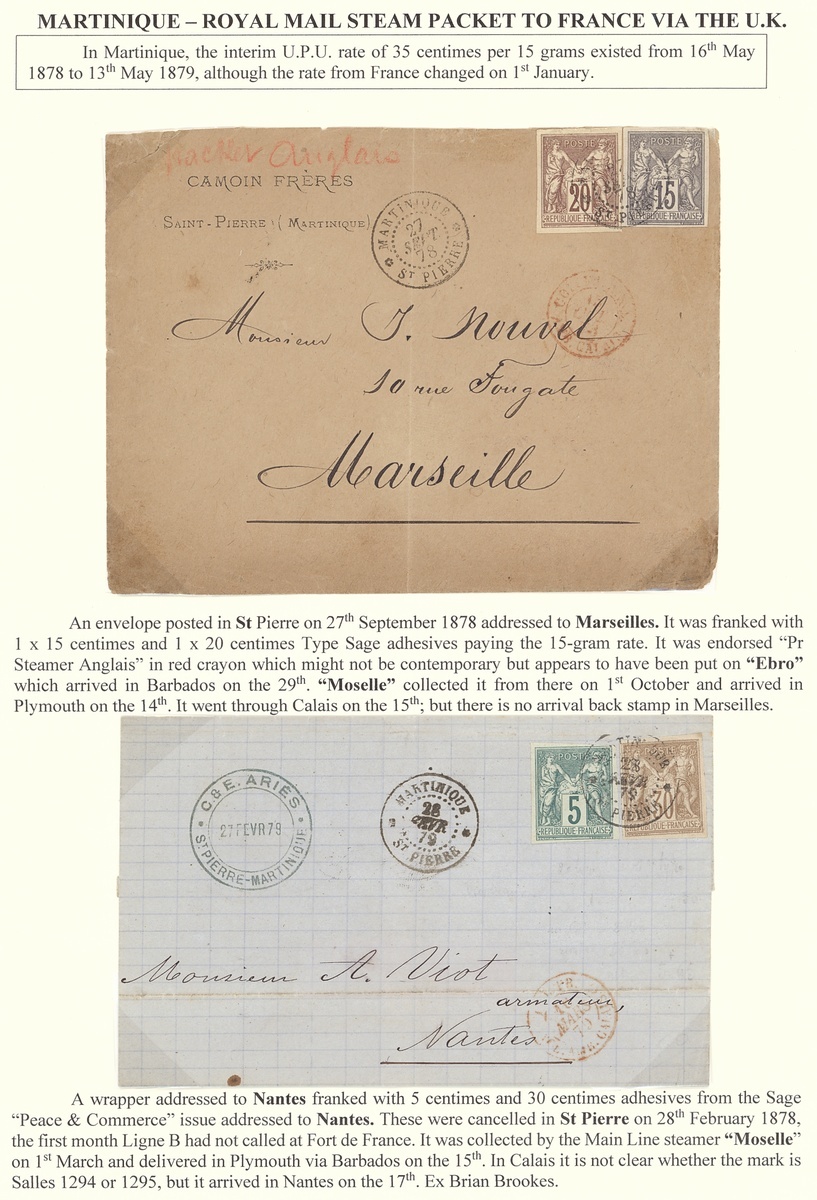 MARTINIQUE – ROYAL MAIL STEAM PACKET TO FRANCE VIA THE U.K.
In Martinique, the interim U.P.U. rate of 35 centimes per 15 grams existed from 16th May
1878 to 13th May 1879, although the rate from France changed on 1st January.
packet Anglais
CAMOIN FRÈRES
SAINT-PIERRE (MARTINIQUE)
MARTINIQUE
27
SEPT
78
ST PIERRE
POSTE
20
REPUBLIQUE FRANÇAISE
POSTE
15
REPUBLIQUE FRANÇAISE
CALAIS
Monsieur J. Nouvel
10 rue Fongate
Marseille
An envelope posted in St Pierre on 27th September 1878 addressed to Marseilles. It was franked with
1 x 15 centimes and 1 x 20 centimes Type Sage adhesives paying the 15-gram rate. It was endorsed “Pr
Steamer Anglais” in red crayon which might not be contemporary but appears to have been put on “Ebro”
which arrived in Barbados on the 29th. “Moselle” collected it from there on 1st October and arrived in
Plymouth on the 14th. It went through Calais on the 15th; but there is no arrival back stamp in Marseilles.
C & E. ARIÈS
27 FEVR 79
ST PIERRE-MARTINIQUE
MARTINIQUE
28
FEVR
79
ST PIERRE
POSTE
5
REPUBLIQUE FRANÇAISE
28
FEVR
PIERRE
30
REPUBLIQUE FRANÇAISE
Monsieur A. Viot
armateur,
Nantes
MARS
A wrapper addressed to Nantes franked with 5 centimes and 30 centimes adhesives from the Sage
“Peace & Commerce” issue addressed to Nantes. These were cancelled in St Pierre on 28th February 1878,
the first month Ligne B had not called at Fort de France. It was collected by the Main Line steamer “Moselle”
on 1st March and delivered in Plymouth via Barbados on the 15th. In Calais it is not clear whether the mark is
Salles 1294 or 1295, but it arrived in Nantes on the 17th. Ex Brian Brookes.